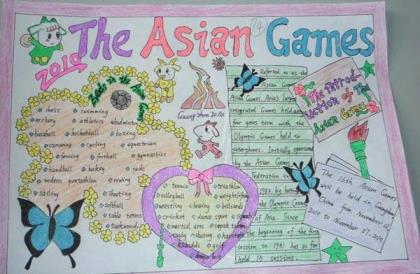 The Asian Games
2010
Sports in the Asian Games
chess swimming
archery athletics badminton
baseball basketball boxing
canoeing cycling equestrian
fencing football gymnastics
handball hockey judo
modern pentathlon rowing
sailing shooting
softball
table tennis
taekwondo
Guangzhou 2010
tennis triathlon
volleyball weightlifting
wrestling boxing
cricket dance sport
martial arts
golf
dragon boat
Referred to as the
Asian Games Asia's largest
integrated Games held every
four years term with the
Olympic Games held in
Initially sponsored
by the Asian Games
Federation
1982 by
the Olympic Council
of Asia. Since
the beginning of the first
session in 1951 has so far
held 15 sessions.
The Introd-
uction of The
Asian Games
The 16th Asian Games
will be held in Guangzhou
China from November 12,
2010 to November 27, 2010